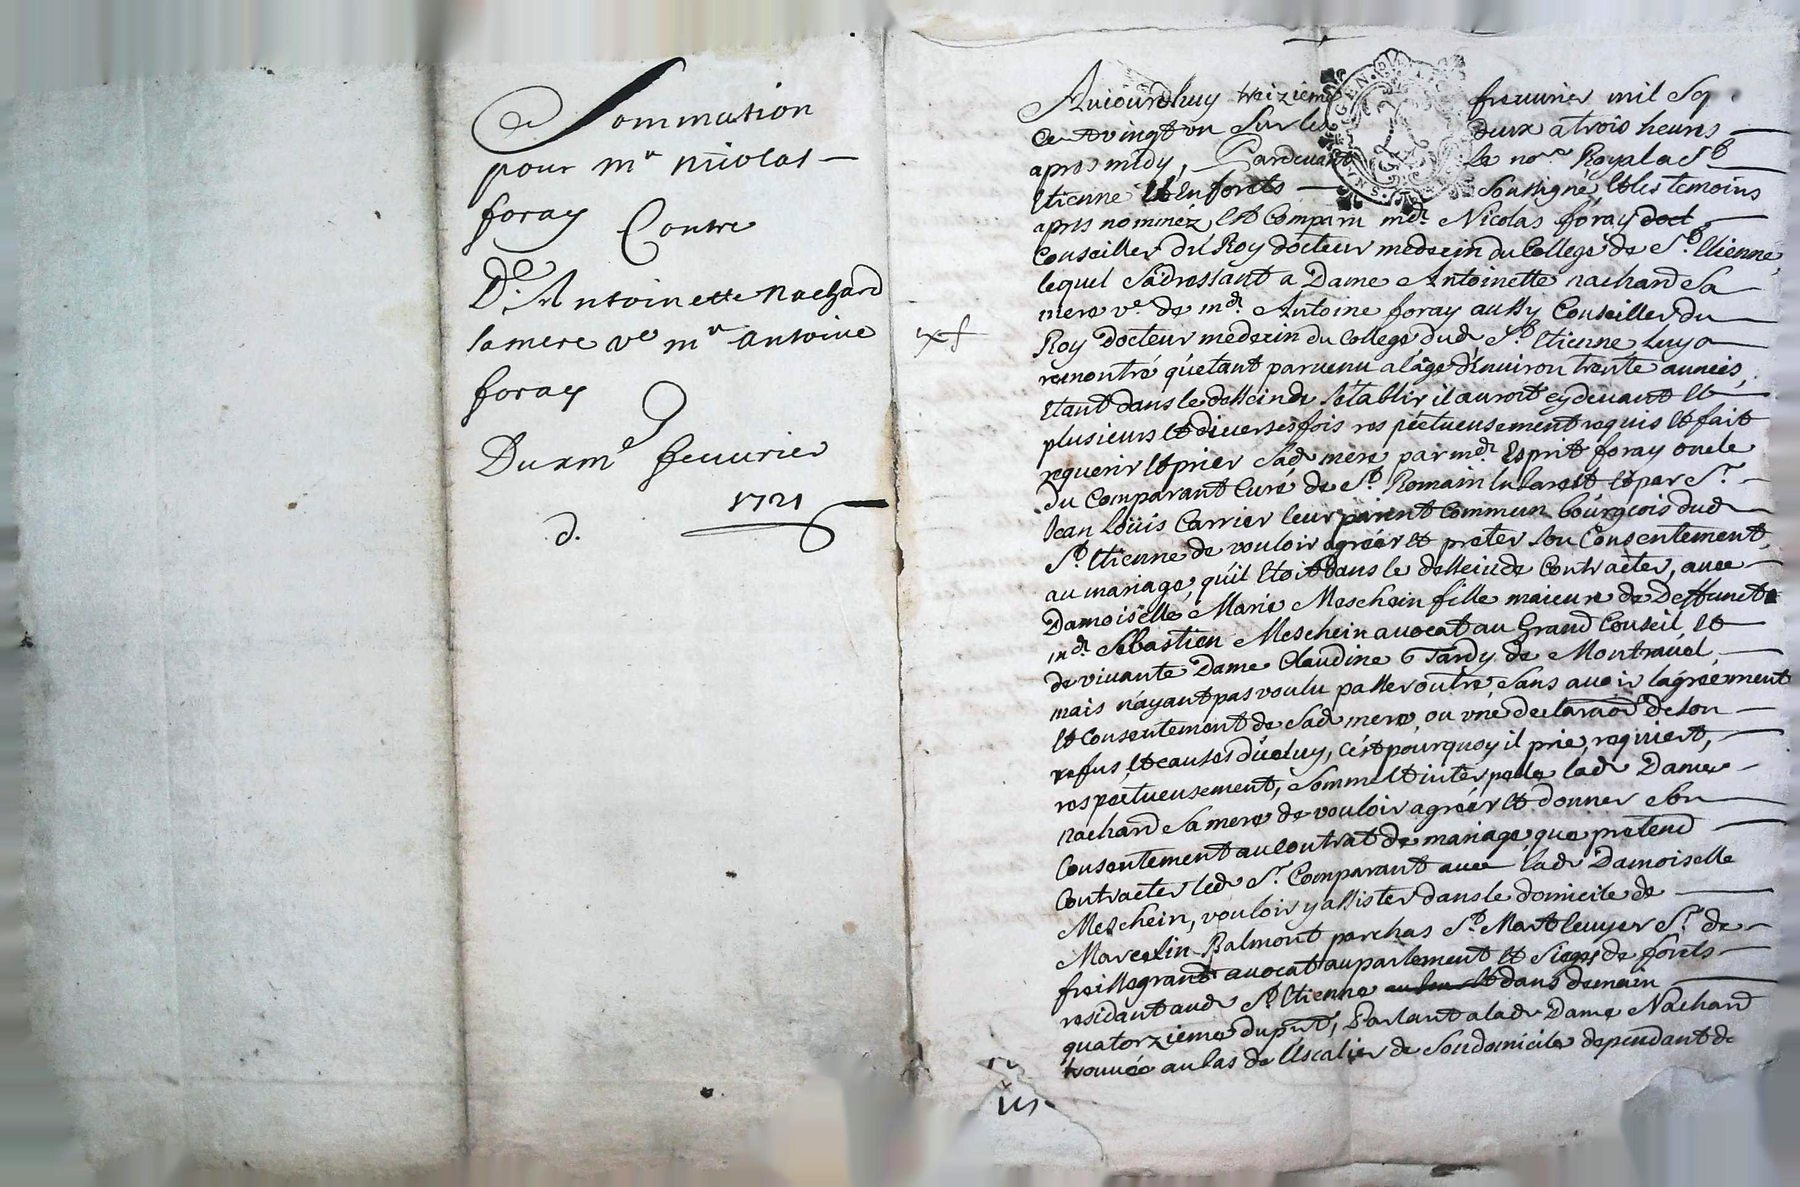 Sommation
pour mr nicolas
foray Contre
De. Antoinette nachard
sa mere ve mr antoine
foray
Du xme feuurier
1721
d.
GEN DA
Aujourdhuy treizieme feuurier mil Sept
Cent vingt un Sur les deux a trois heures
apres midy, Pardeuant le nore Royal a St
Etienne Et En forets Soussigné Et les temoins
apres nommez, Est Comparu mdr Nicolas foray doct
Conseiller du Roy docteur medecin du College de St Etienne,
lequel Sadressant a Dame Antoinette nachard Sa
mere ve de mdr Antoine foray aussy Conseiller du
Roy docteur medecin du College dud St Etienne Luy a
remontré qu'etant paruenu a lâge d'enuiron trente années,
Etant dans le dessein de S'etablir il auroit cy deuant Et
plusieurs Et diuerses fois respectueusement requis Et fait
requerir Et prier Sad mere par mdr Esprit foray oncle
du Comparant Curé de St Romain Et par Sr
Jean Loüis Carrier leur parent Commun bourgeois dud
St Etienne de vouloir agréer Et preter Son Consentement
au mariage, qu'il Etoit dans le dessein de Contracter, auec
Damoiselle Marie Meschein fille majeure de Deffunct
mdr Sebastien Meschein auocat au Grand Conseil, Et
de viuante Dame Claudine Tardy de Montrauel,
mais n'ayant pas voulu passer outre, Sans auoir l'agréement
Et Consentement de Sad mere, ou vne declaraõn de Son
reffus, Et causes d'iceluy, C'est pourquoy il prie, requiert,
respectueusement, Somme Et interpelle lad Dame
nachard Sa mere de vouloir agréer Et donner Son
Consentement au Contrat de mariage, que pretend
Contracter led Sr Comparant auec lad Damoiselle
Meschein, vouloir y assister dans le domicile de
Marcelin Palmont parchas St Mart Ecuyer Sr de
freillegrand auocat au parlement Et Sieges de forets
residant aud St Etienne Et dans demain
quatorzieme du pnt, Parlant a lad Dame Nachard
trouuée au bas de l'Escalier de Son domicile dependant de